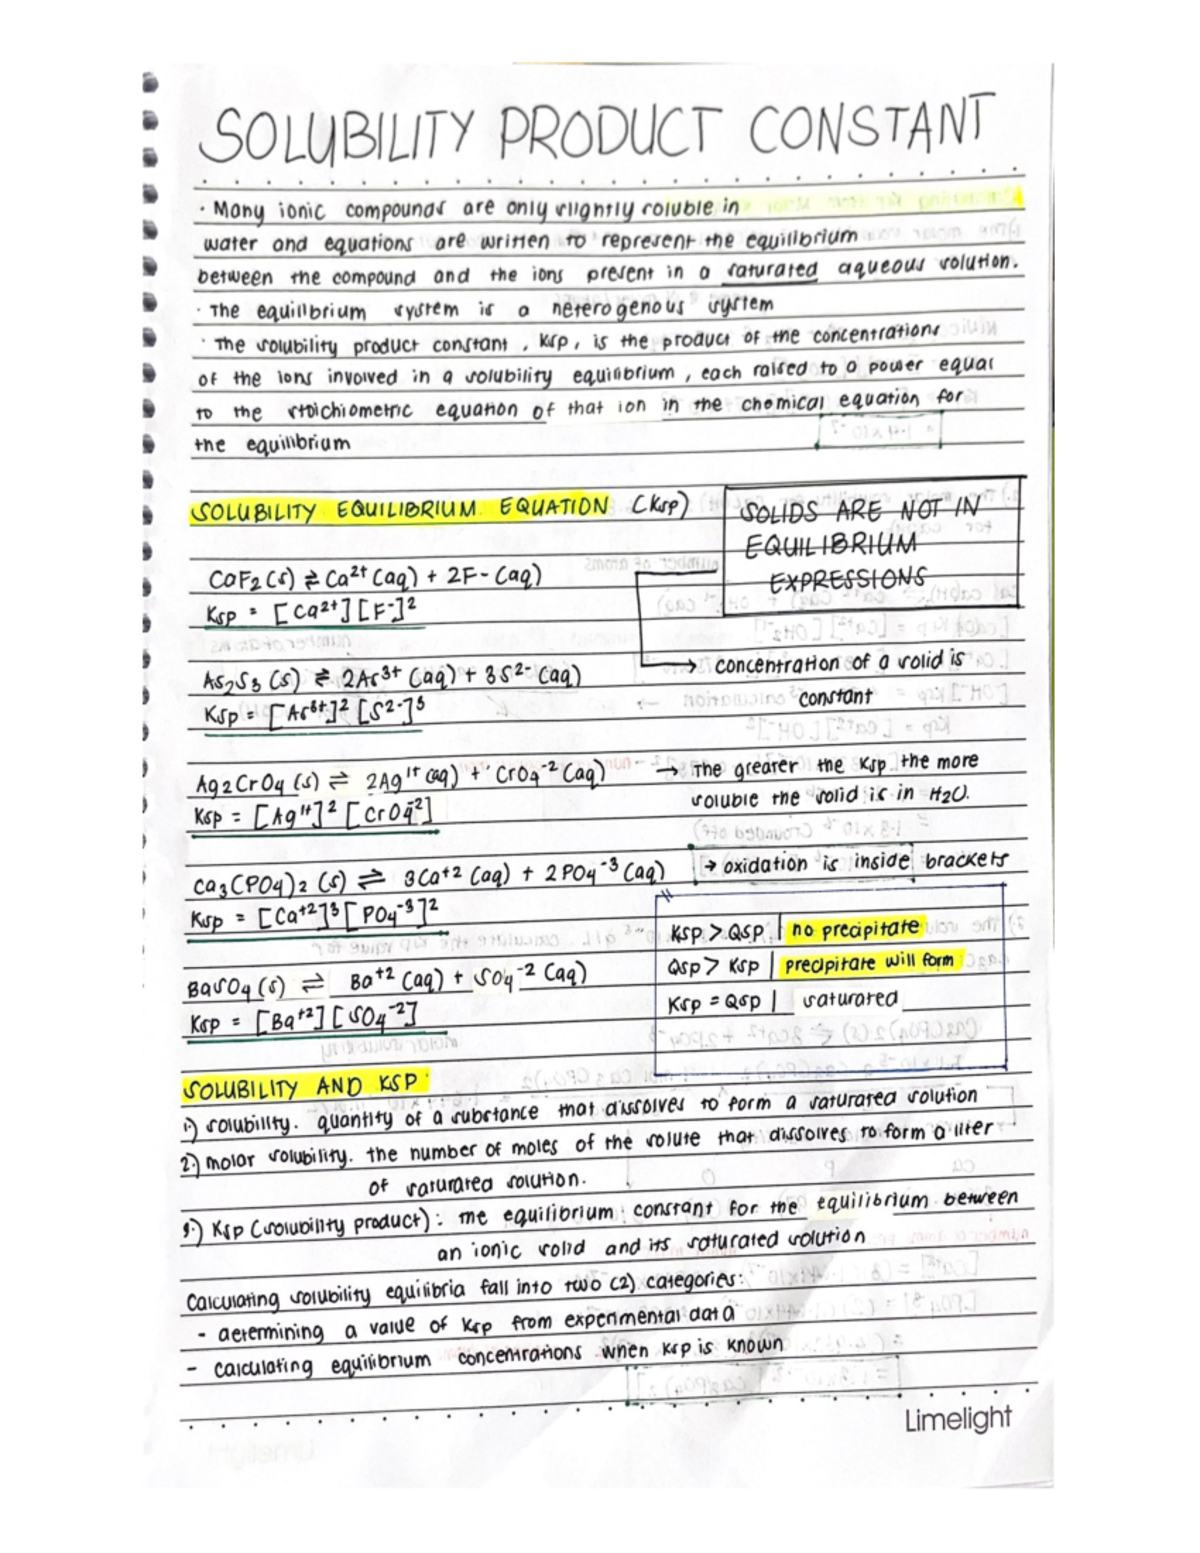 SOLUBILITY PRODUCT CONSTANT
· Many ionic compounds are only slightly soluble in
water and equations are written to represent the equilibrium
between the compound and the ions present in a saturated aqueous solution.
· The equilibrium system is a heterogenous system
· The solubility product constant, Ksp, is the product of the concentrations
of the ions involved in a solubility equilibrium, each raised to a power equal
to the stoichiometric equation of that ion in the chemical equation for
the equilibrium
SOLUBILITY EQUILIBRIUM EQUATION (Ksp)
SOLIDS ARE NOT IN
EQUILIBRIUM
EXPRESSIONS
CaF2 (s) ⇌ Ca2+ (aq) + 2F- (aq)
Ksp = [Ca2+][F-]2
→ concentration of a solid is
constant
As2S3 (s) ⇌ 2As3+ (aq) + 3S2- (aq)
Ksp = [As3+]2 [S2-]3
Ag2CrO4 (s) ⇌ 2Ag1+ (aq) + CrO4-2 (aq)
Ksp = [Ag1+]2 [CrO4-2]
→ The greater the Ksp the more
soluble the solid is in H2O.
Ca3(PO4)2 (s) ⇌ 3Ca+2 (aq) + 2PO4-3 (aq)
Ksp = [Ca+2]3 [PO4-3]2
→ oxidation is inside brackets
Ksp > Qsp | no precipitate
Qsp > Ksp | precipitate will form
Ksp = Qsp | saturated
BaSO4 (s) ⇌ Ba+2 (aq) + SO4-2 (aq)
Ksp = [Ba+2] [SO4-2]
SOLUBILITY AND KSP
1.) solubility. quantity of a substance that dissolves to form a saturated solution
2.) molar solubility. the number of moles of the solute that dissolves to form a liter
of saturated solution.
3.) Ksp (solubility product): the equilibrium constant for the equilibrium between
an ionic solid and its saturated solution
Calculating solubility equilibria fall into two (2) categories:
- determining a value of Ksp from experimental data
- calculating equilibrium concentrations when Ksp is known
Limelight